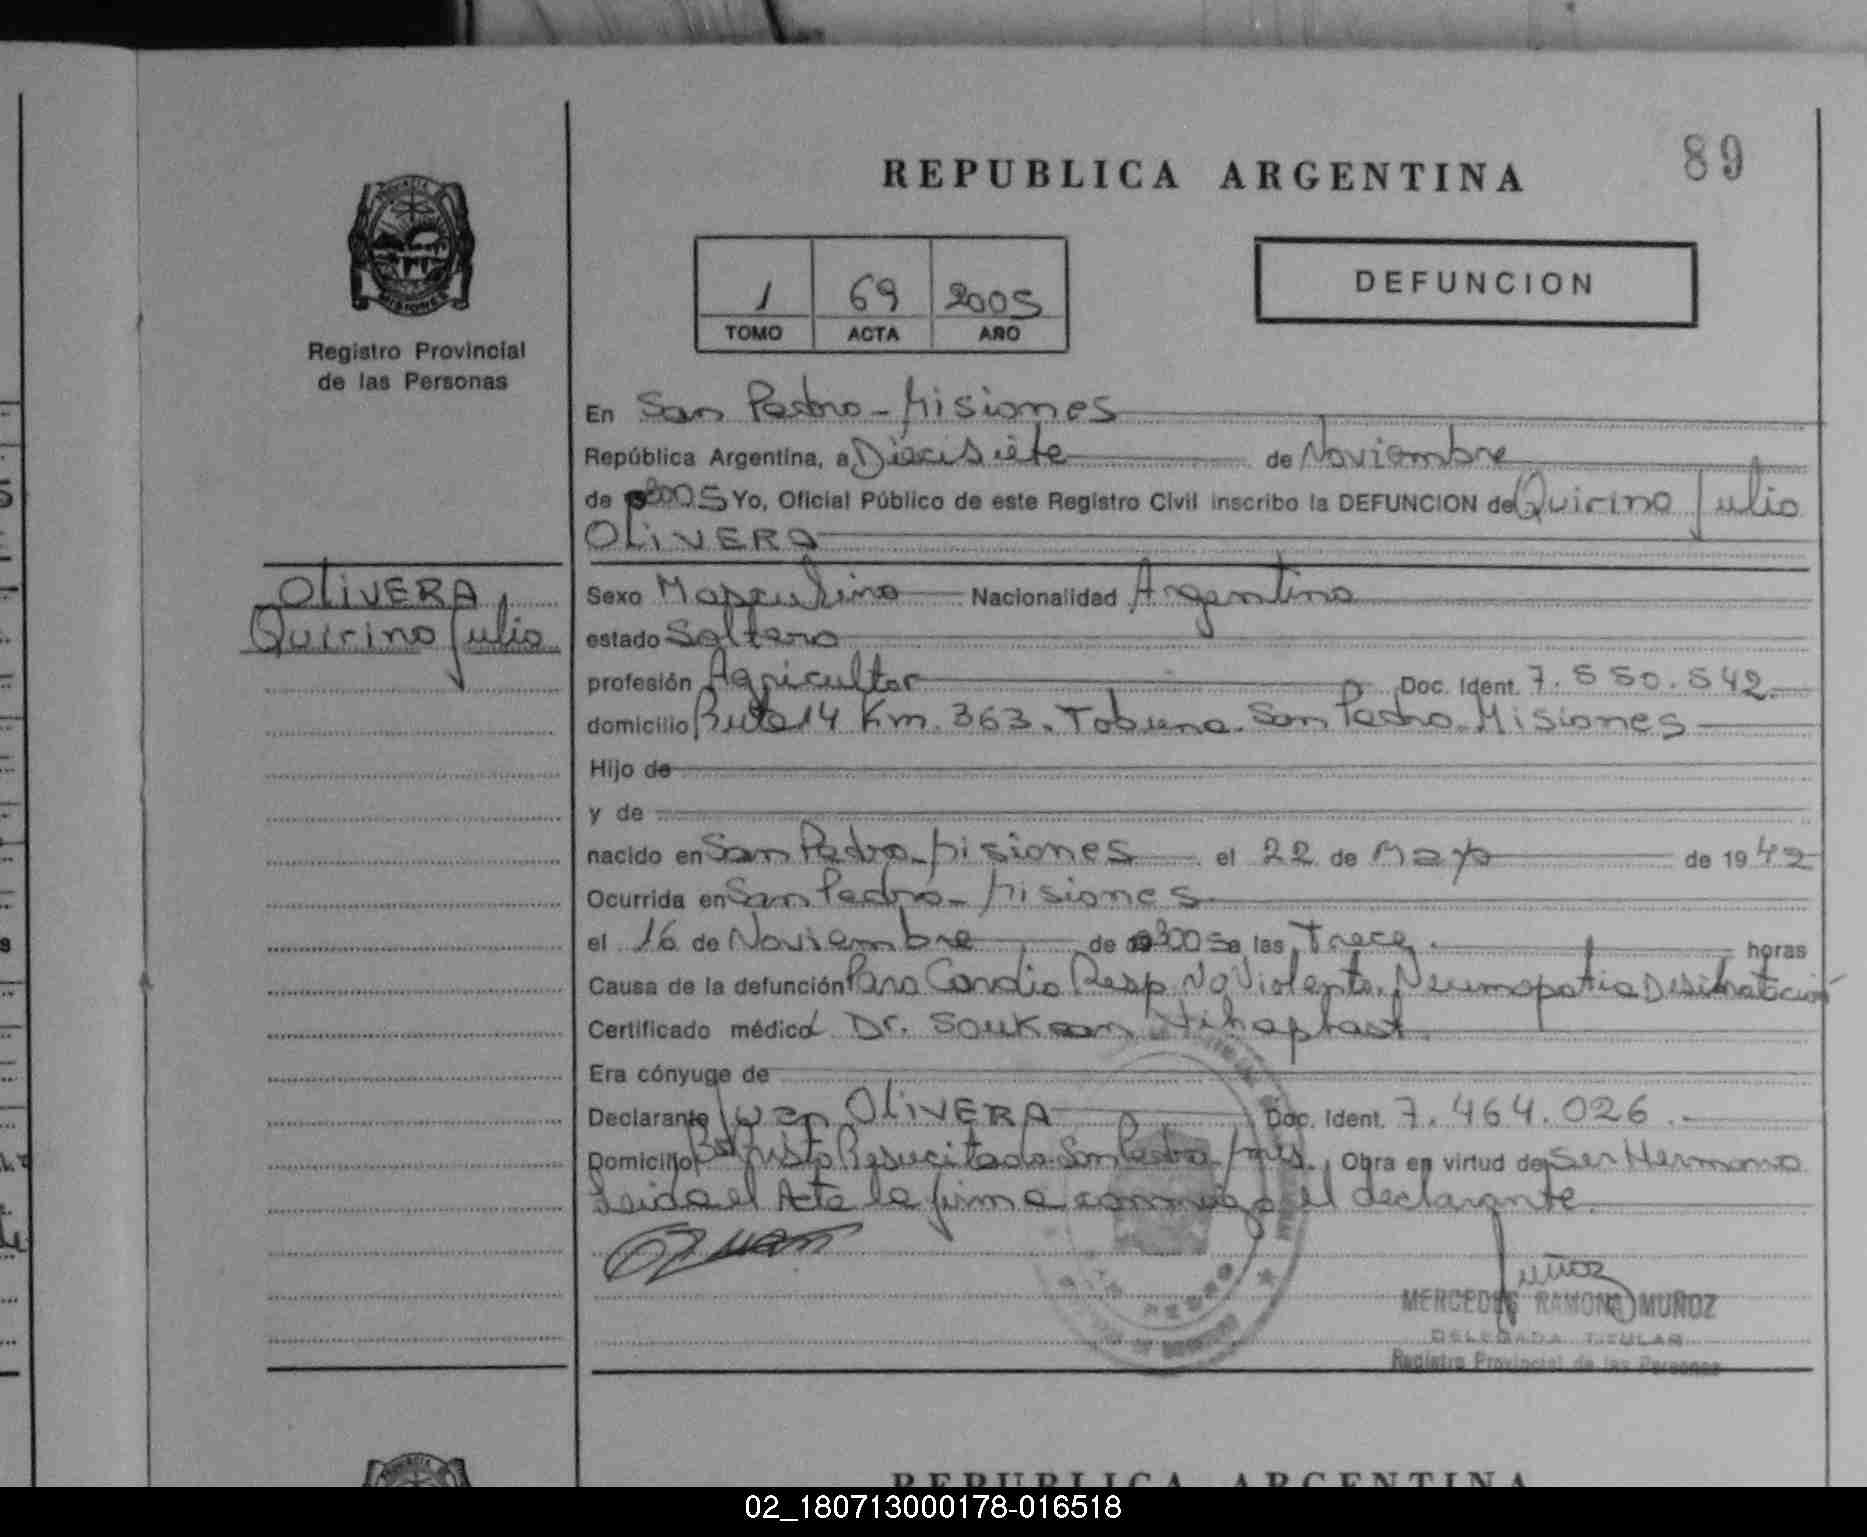 REPUBLICA ARGENTINA
89
1 69 2005
TOMO ACTA AÑO
DEFUNCION
PROVINCIA
MISIONES
Registro Provincial
de las Personas
En San Pedro - Misiones
República Argentina, a Diecisiete de Noviembre
de 2005 Yo, Oficial Público de este Registro Civil inscribo la DEFUNCION de Quirino Julio
OLIVERA
OLIVERA
Quirino Julio
Sexo Masculino Nacionalidad Argentina
estado Soltero
profesión Agricultor Doc. Ident. 7.550.542.
domicilio Ruta 14 Km. 363. Tobuna. San Pedro. Misiones
Hijo de
y de
nacido en San Pedro - Misiones el 22 de Mayo de 1942
Ocurrida en San Pedro - Misiones
el 16 de Noviembre de 2005 a las Trece. horas
Causa de la defunción Paro Cardio Resp. No Violento. Neumopatia Desidratación
Certificado médico Dr. 
Era cónyuge de
Declarante Juan OLIVERA Doc. Ident. 7.464.026.
Domicilio Bº Cristo Resucitado San Pedro Mnes. Obra en virtud de Ser Hermano
Leida el Acta la firma conmigo el declarante.
Muñoz
MERCEDES RAMONA MUÑOZ
DELEGADA TITULAR
Registro Provincial de las Personas
REPUBLICA ARGENTINA
02_180713000178-016518